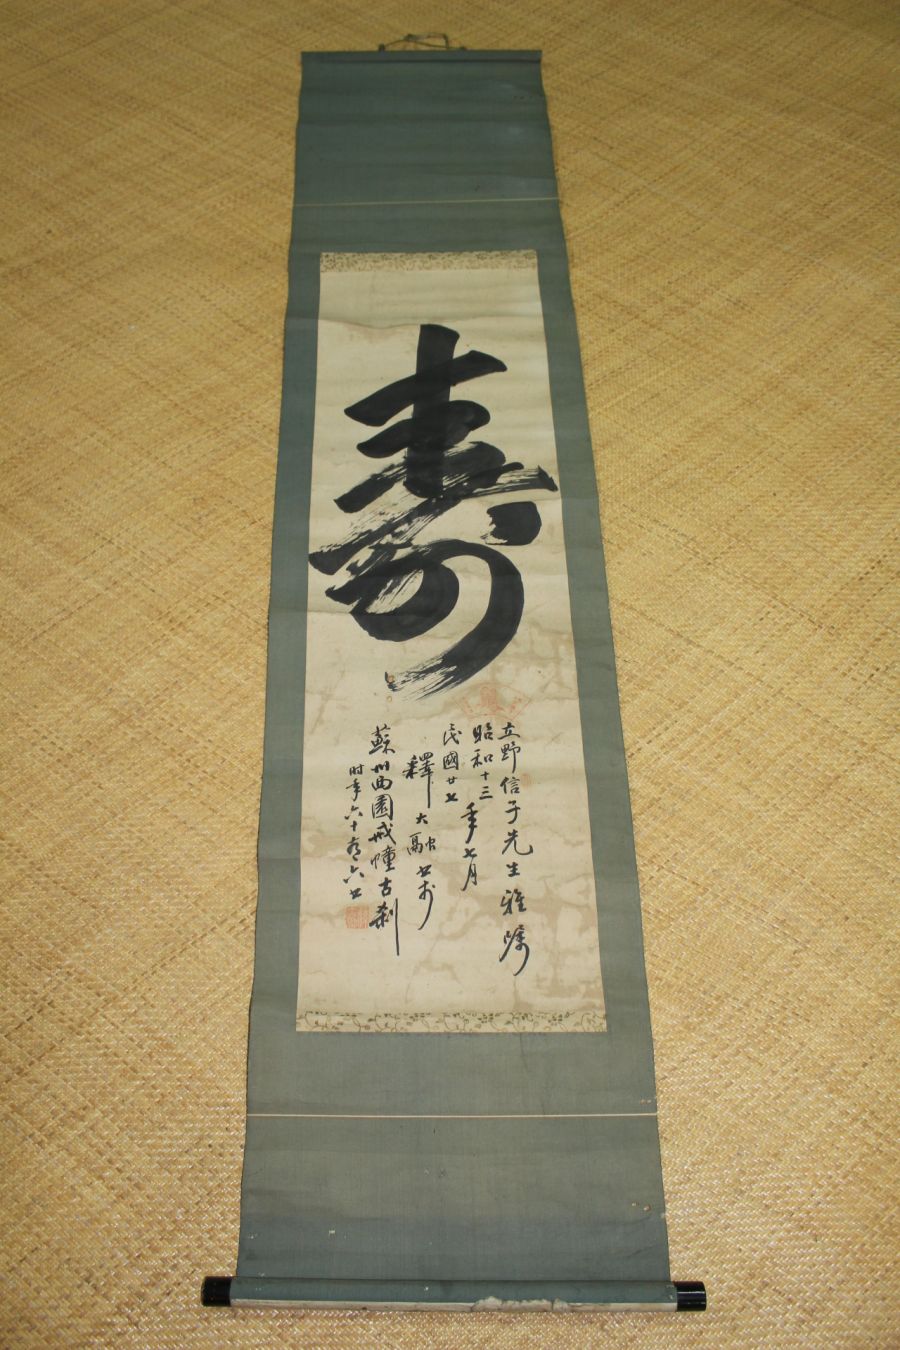 寿
立野信子先生雅属
昭和十三年七月
民國廿七
釋大融書於
蘇州西園戒幢古剎
时年六十有六